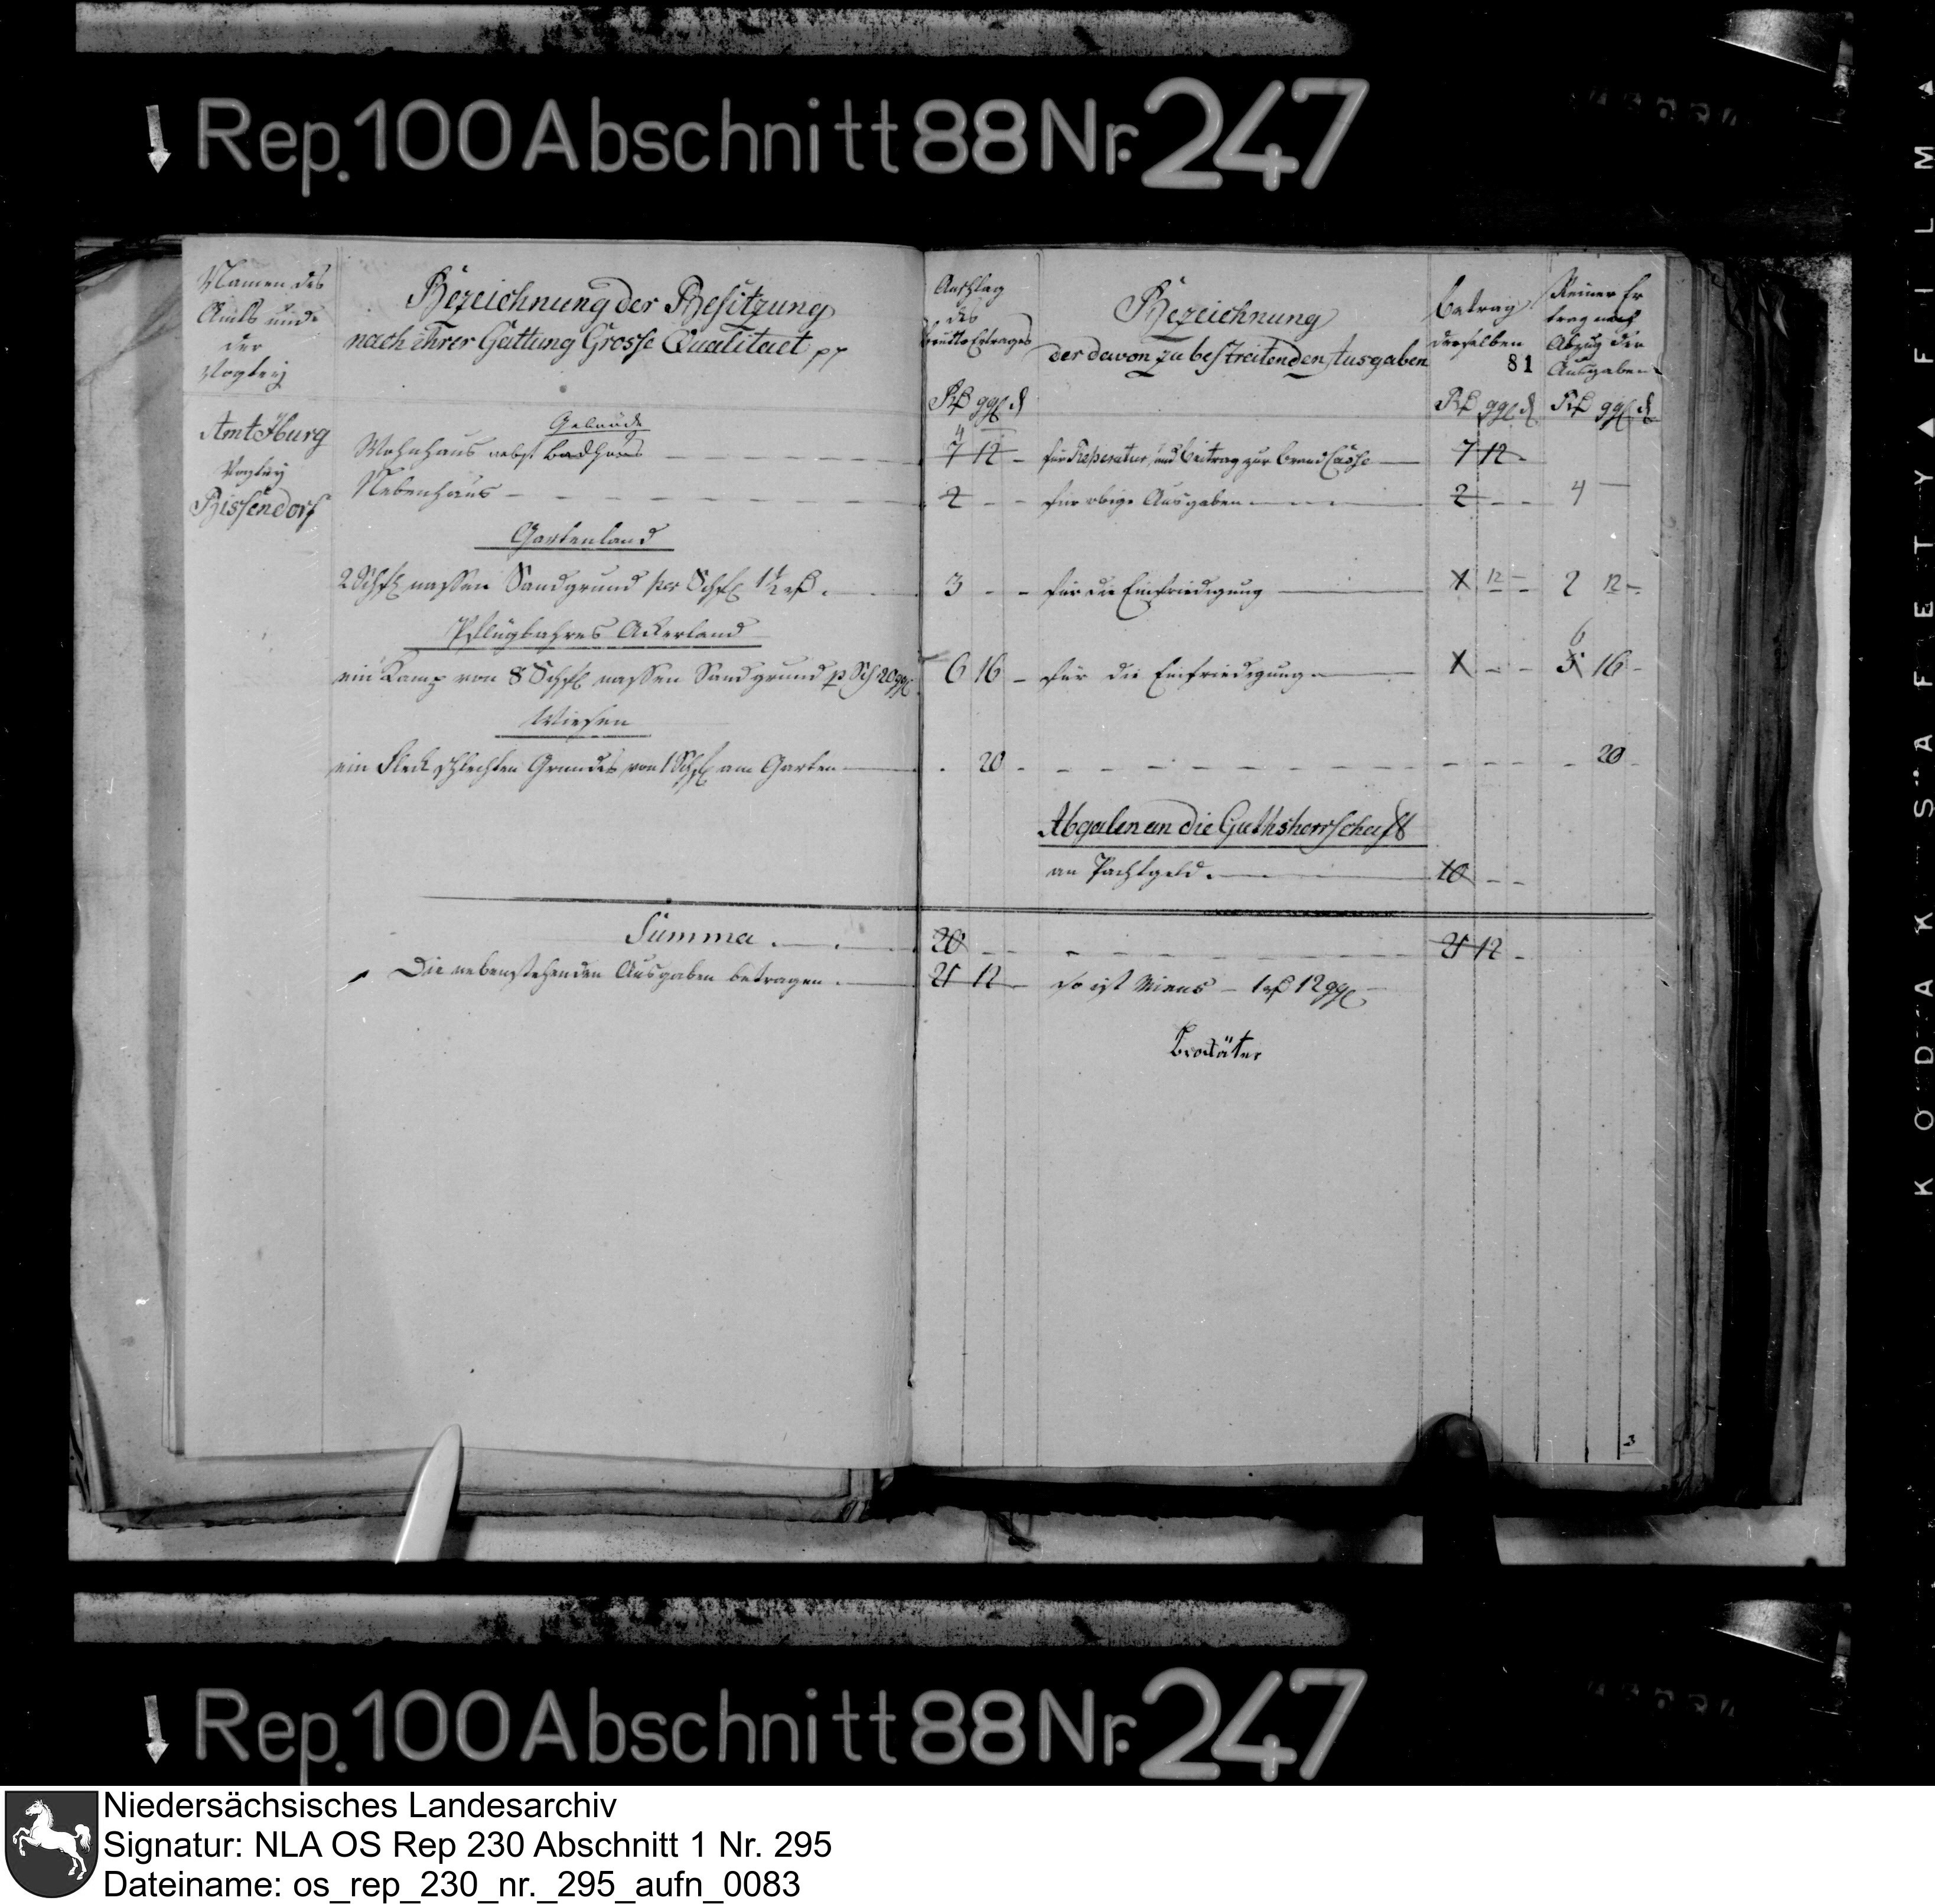 Rep. 100 Abschnitt 88 Nr. 247
Namen des
Amts und
der
Vogtey
Bezeichnung der Besitzung
nach ihrer Gattung Grosse Qualitaet pp
Anschlag
des
Brutto Ertrages
Bezeichnung
der davon zu bestreitenden Ausgaben
Betrag
derselben
81
Reiner Er
trag nach
Abzug der
Ausgaben
Rß ggl d
Rß ggl d
Rß ggl d
Amt Iburg
Vogtey
Bissendorf
Gebäude
4
Wohnhaus nebst Backhaus 7 12 - für Reperatur und Beitrag zur Brand Casse 7 12 -
Nebenhaus 2 - - für obige Ausgaben 2 - - 4 -
Gartenland
2 Schfl nassen Sandgrund per Schfl 1½ rß 3 - - für die Einfriedigung 1 12 - 2 12 -
Pflugbahres Ackerland
6
ein Kamp von 8 Schfl nassen Sandgrund p Sch 20 ggl 6 16 - für die Einfriedigung 1 - - 5 16 -
Wiesen
ein Fleck schlechten Grundes von 1 Schfl am Garten . 20 - - 20 -
Abgaben an die Guthsherrschaft
an Pachtgeld 10 - -
Summa 20 - - 21 12 -
Die nebenstehenden Ausgaben betragen 21 12 - so ist Minus - 1 rß 12 ggl
3
Rep. 100 Abschnitt 88 Nr. 247
KODAK SAFETY FILM
Niedersächsisches Landesarchiv
Signatur: NLA OS Rep 230 Abschnitt 1 Nr. 295
Dateiname: os_rep_230_nr._295_aufn_0083